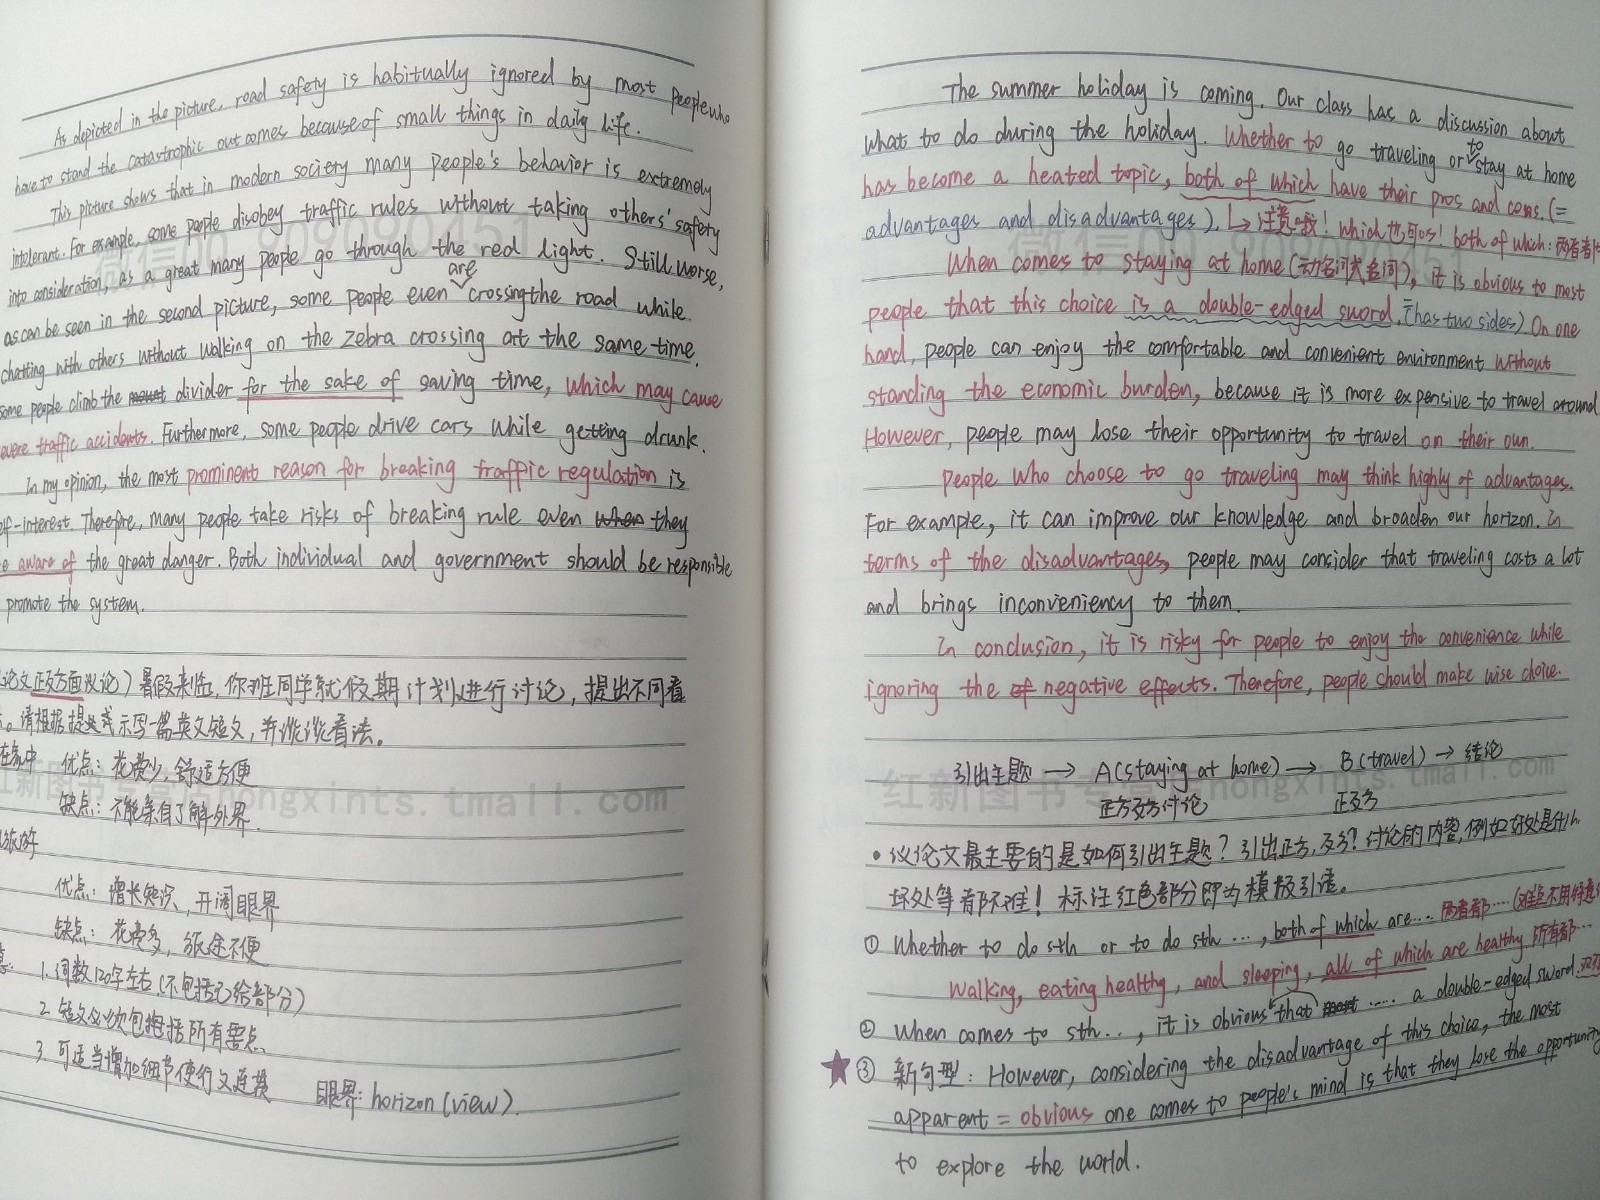 As depicted in the picture, road safety is habitually ignored by most people who
have to stand the catastrophic outcomes because of small things in daily life.
This picture shows that in modern society many people's behavior is extremely
intolerant. For example, some people disobey traffic rules without taking others' safety
into consideration, as a great many people go through the red light. Still worse,
as can be seen in the second picture, some people even are crossing the road while
chatting with others without walking on the zebra crossing at the same time.
some people climb the mount divider for the sake of saving time, which may cause
evere traffic accidents. Furthermore, some people drive cars while getting drunk.
In my opinion, the most prominent reason for breaking traffic regulation is
elf-interest. Therefore, many people take risks of breaking rule even when they
e aware of the great danger. Both individual and government should be responsible
promote the system.
论文正反方面议论）暑假来临，你班同学就假期计划进行讨论，提出不同看
。请根据提示写一篇英文短文，并谈谈看法。
在家中 优点：花费少，舒适方便
缺点：不能亲自了解外界.
旅游
优点：增长知识，开阔眼界
缺点：花费多，旅途不便
1. 词数120字左右（不包括已给部分）
2. 短文必须包括所有要点
3. 可适当增加细节使行文连贯 眼界：horizon (view).
The summer holiday is coming. Our class has a discussion about
what to do during the holiday. Whether to go traveling or to stay at home
has become a heated topic, both of which have their pros and cons. (=
advantages and disadvantages). ↳ 注意哦！which也可os！both of which：两者都
When comes to staying at home (动名词或名词), it is obvious to most
people that this choice is a double-edged sword. (= has two sides) On one
hand, people can enjoy the comfortable and convenient environment without
standing the economic burden, because it is more expensive to travel around
However, people may lose their opportunity to travel on their own.
People who choose to go traveling may think highly of advantages.
For example, it can improve our knowledge and broaden our horizon. In
terms of the disadvantages, people may consider that traveling costs a lot
and brings inconveniency to them.
In conclusion, it is risky for people to enjoy the convenience while
ignoring the of negative effects. Therefore, people should make wise choice.
引出主题 → A(staying at home) → B(travel) → 结论
正方反方讨论 正反方
• 议论文最主要的是如何引出主题？引出正方，反方？讨论的内容，例如好处是什么
坏处等都不难！标注红色部分即为模版引语。
① Whether to do sth or to do sth ..., both of which are... 两者都……(难点不用特意
Walking, eating healthy, and sleeping, all of which are healthy 所有都…
② When comes to sth..., it is obvious that most ..... a double-edged sword.
★ ③ 新句型：However, considering the disadvantage of this choice, the most
apparent = obvious one comes to people's mind is that they lose the opportunity
to explore the world.